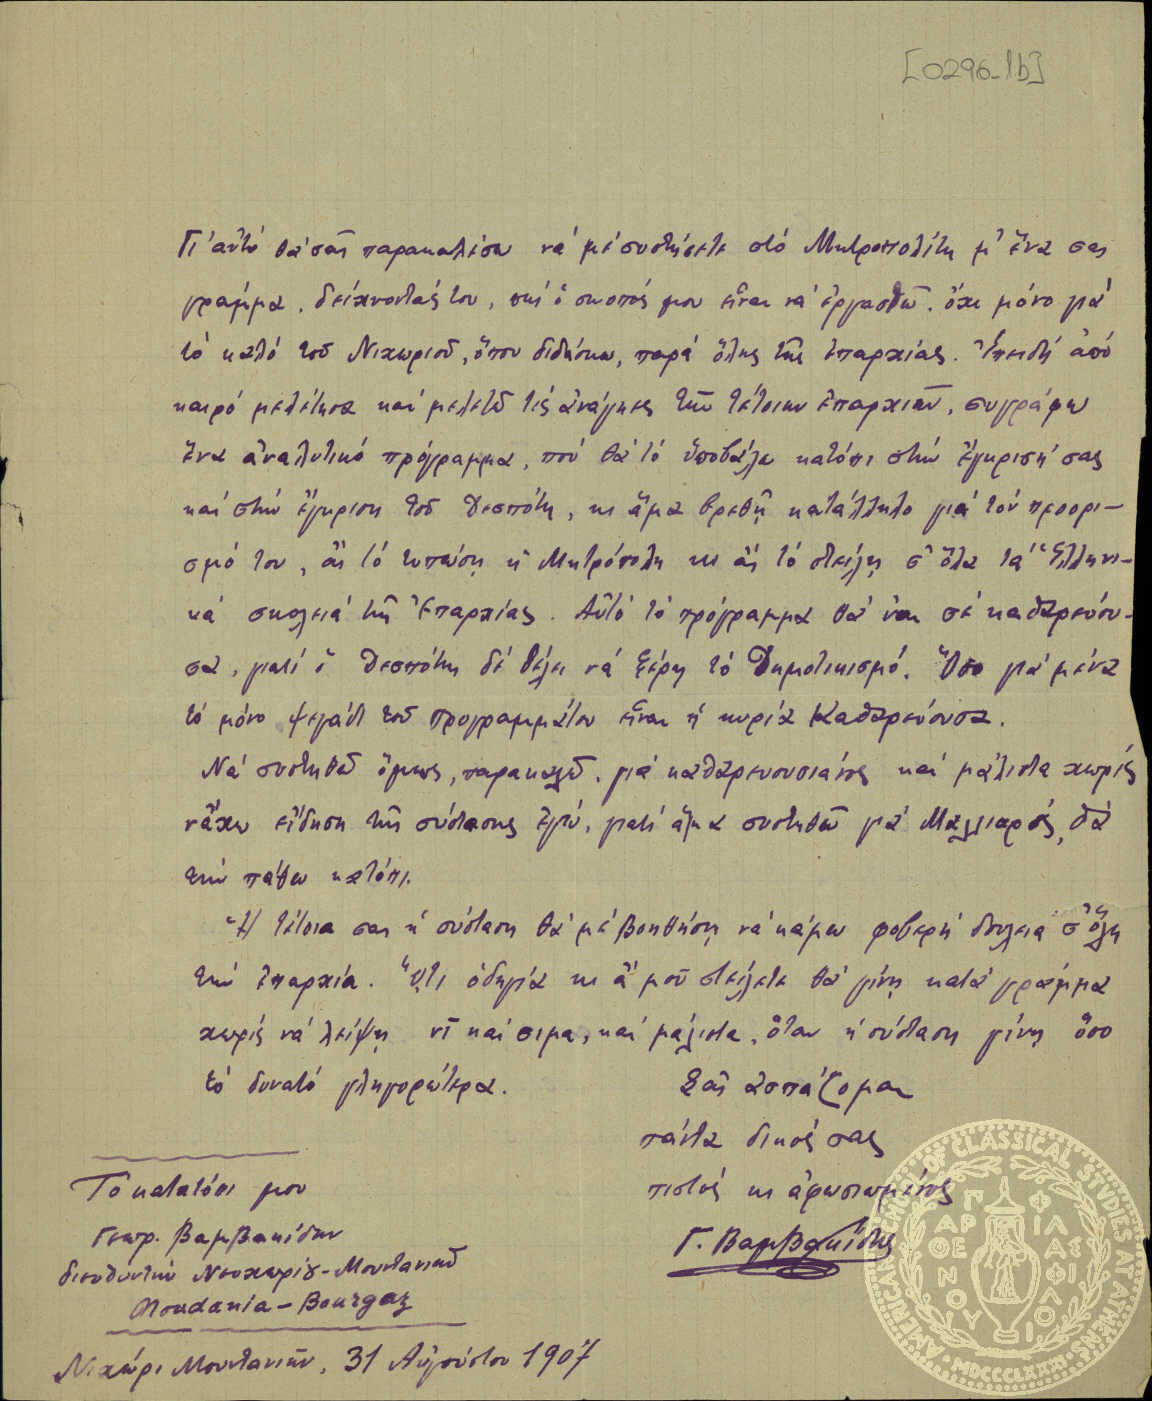 [0296-1b]
Γι' αὐτό θά σᾶς παρακαλέσω νά μέ συστήσετε στό Μητροπολίτη μ' ἕνα σας
γράμμα, δείχνοντάς του, πώς ὁ σκοπός μου εἶναι νά ἐργασθῶ, ὄχι μόνο γιά
τό καλό τοῦ Νιχωριοῦ, ὅπου διδάσκω, παρά ὅλης τῆς ἐπαρχίας. Ἐπειδή ἀπό
καιρό μελέτησα καί μελετῶ τίς ἀνάγκες τῶν τέτοιων ἐπαρχιῶν, συγράφω
ἕνα ἀναλυτικό πρόγραμμα, πού θά τό ὑποβάλω κατόπι στήν ἔγκρισή σας
καί στήν ἔγκριση τοῦ Δεσπότη, κι ἅμα βρεθῇ κατάλληλο γιά τόν προορι-
σμό του, ἄς τό τυπώσῃ ἡ Μητρόπολη κι ἄς τό στείλῃ σ' ὅλα τά Ἑλληνι-
κά σκολειά τῆς Ἐπαρχίας. Αὐτό τό πρόγραμμα θά ναι σέ καθαρεύου-
σα, γιατί ὁ Δεσπότης δέ θέλει νά ξέρῃ τό Δημοτικισμό. Ὅσο γιά μένα
τό μόνο ψεγάδι τοῦ προγραμμάτου εἶναι ἡ κυρία Καθαρεύουσα.
Νά συστηθῶ ὅμως, παρακαλῶ, γιά καθαρευουσιάνος καί μάλιστα χωρίς
νἄχω εἴδηση τῆς σύστασης ἐγώ, γιατί ἅμα συστηθῶ γιά Μαλλιαρός, θά
τήν πάθω κατόπι.
Ἡ τέτοια σας ἡ σύσταση θά μέ βοηθήσῃ νά κάμω φοβερή δουλειά σ' ὅλη
τήν ἐπαρχία. Ὅ,τι ὁδηγία κι ἄ μοῦ στείλετε θά γίνῃ κατά γράμμα
χωρίς νά λείψῃ νῖ καί σιμα, καί μάλιστα, ὅταν ἡ σύσταση γίνῃ ὅσο
τό δυνατό γληγορώτερα.
Σᾶς ἀσπάζομαι
πάντα δικός σας
πιστός κι ἀφωσιωμένος
Γ. Βαμβακίδης
Τό κατατόπι μου
Γεωρ. Βαμβακίδην
διευθυντήν Νεοχωρίου-Μουντανιῶν
Moudania - Bourgaz
Νιχώρι Μουντανιῶν, 31 Αὐγούστου 1907
AMERICAN SCHOOL OF CLASSICAL STUDIES AT ATHENS
· MDCCCLXXXI ·